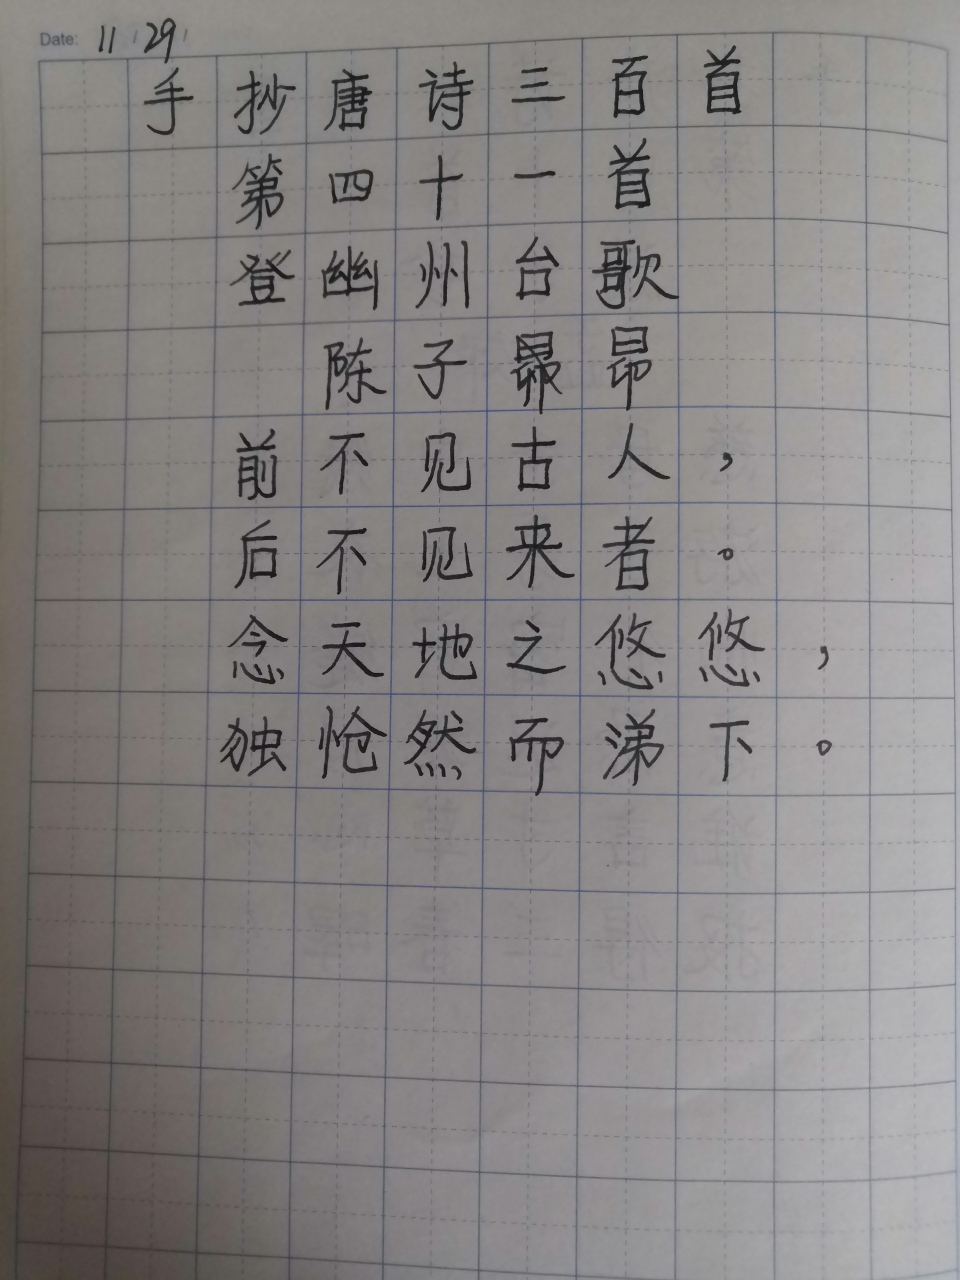 Date: 11/29/
手抄唐诗三百首
第四十一首
登幽州台歌
陈子昂
前不见古人，
后不见来者。
念天地之悠悠，
独怆然而涕下。